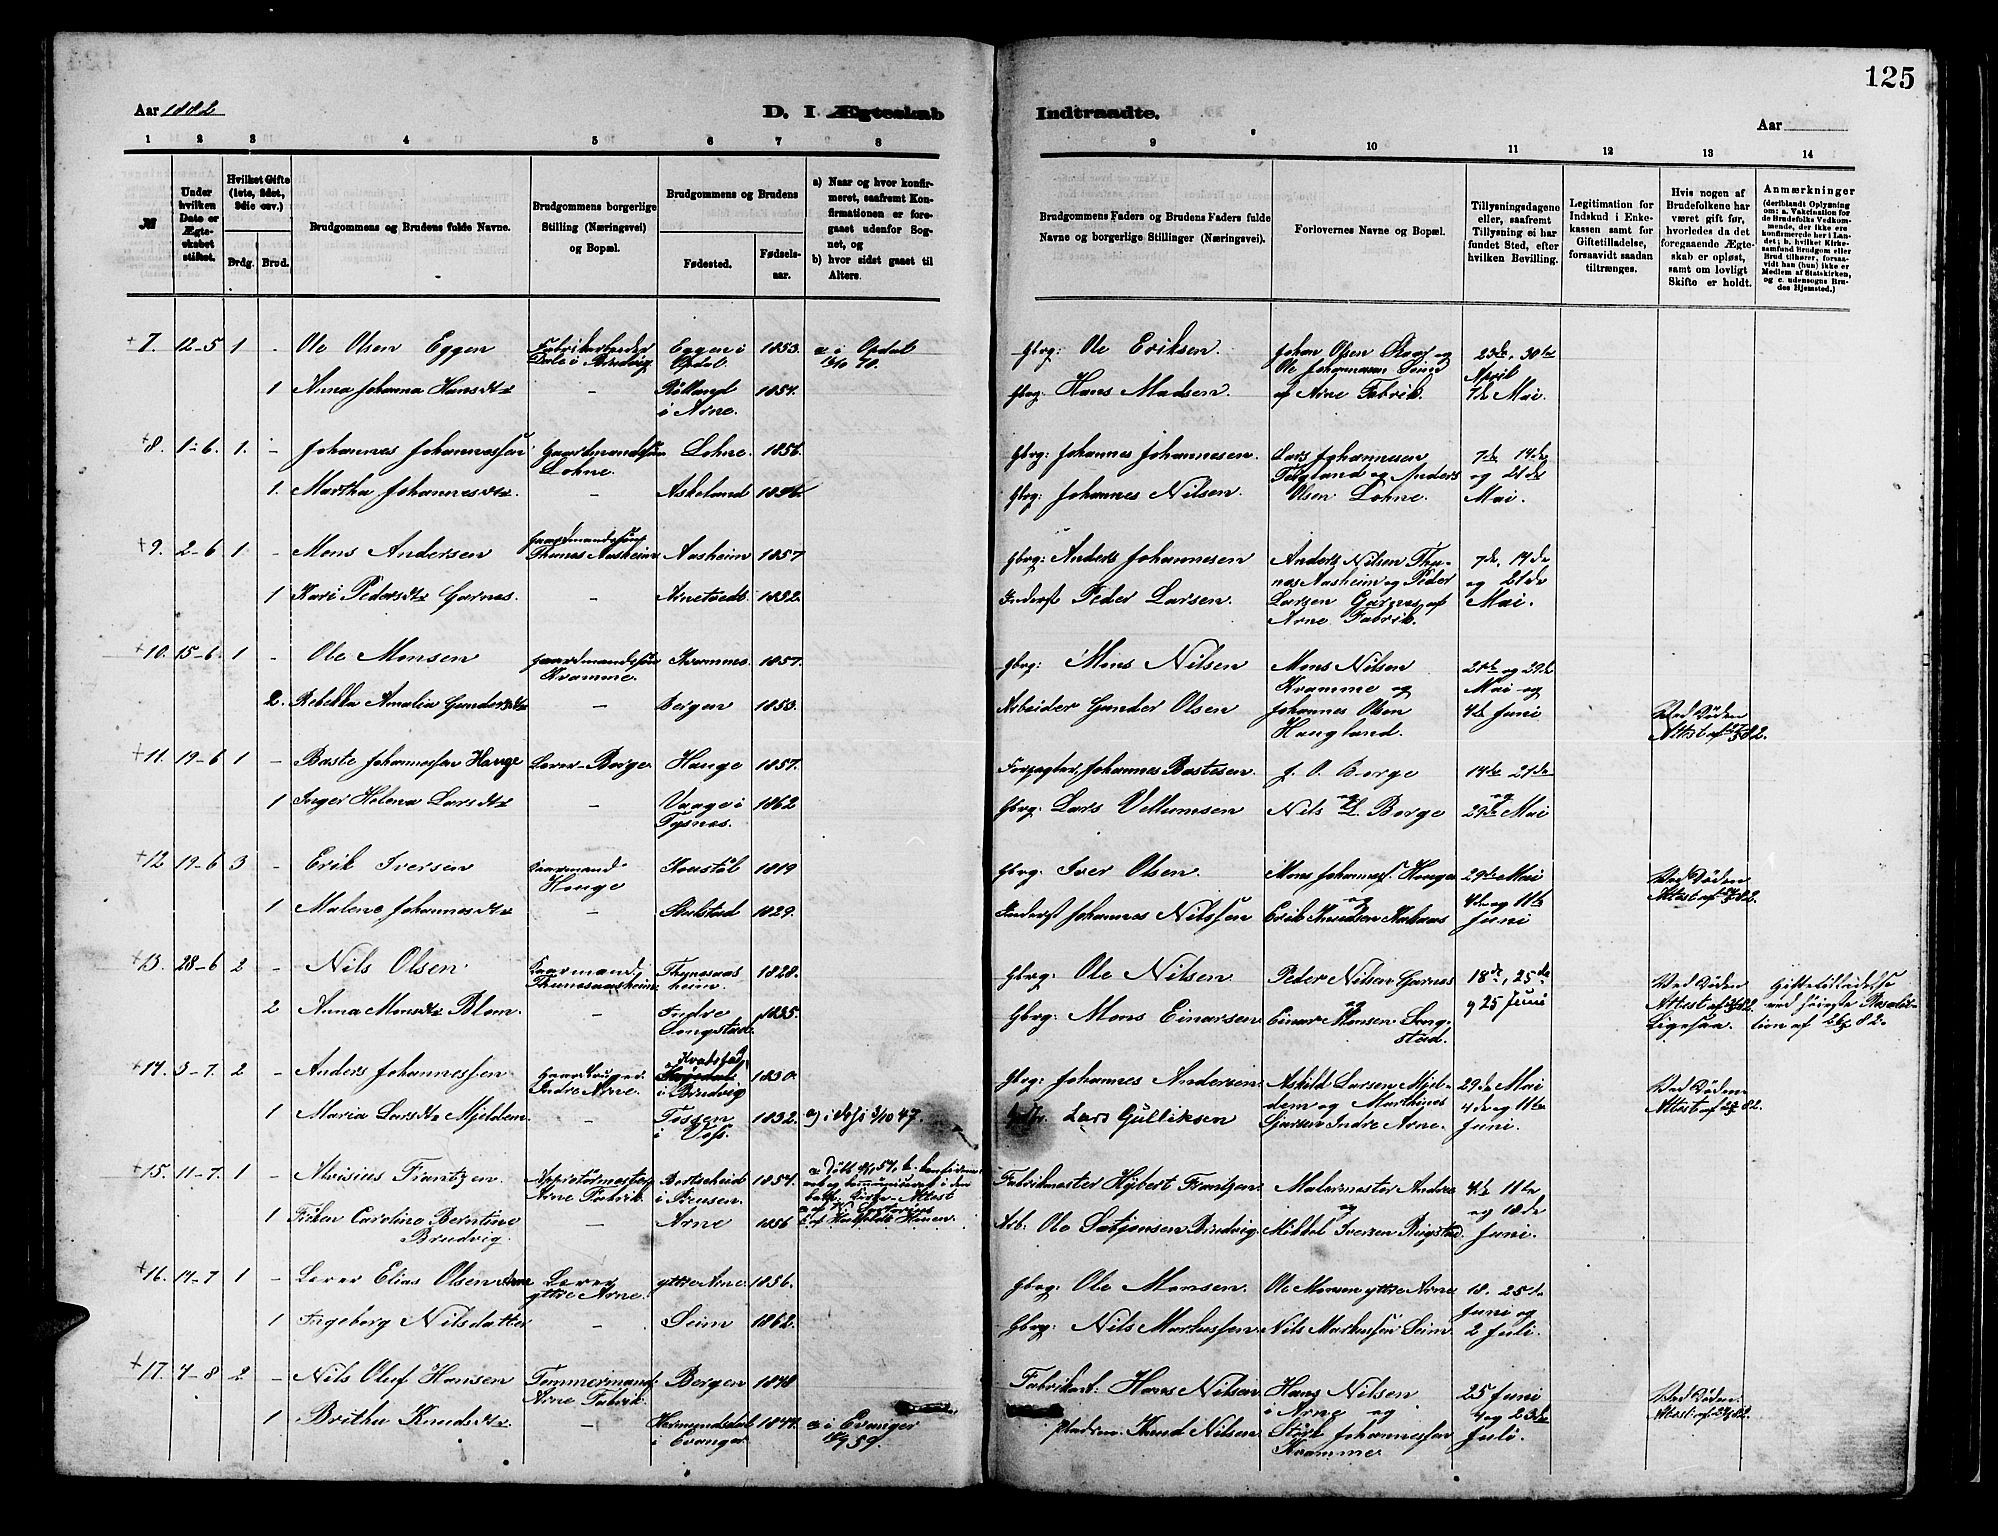 125
Aar 1882
D. I Ægteskab
Indtraadte.
Aar
1 2 3 4 5 6 7 8
9 10 11 12 13 14
№
Under hvilken Dato er Ægteskabet stiftet.
Hvilket Gifte (1ste, 2det, 3die osv.)
Brdg. Brud.
Brudgommens og Brudens fulde Navne.
Brudgommens borgerlige Stilling (Næringsvei) og Bopæl.
Brudgommens og Brudens
Fødested.
Fødselsaar.
a) Naar og hvor konfirmeret, saafremt Konfirmationen er foregaaet udenfor Sognet, og
b) hvor sidst gaaet til Alters.
Brudgommens Faders og Brudens Faders fulde Navne og borgerlige Stillinger (Næringsvei).
Forlovernes Navne og Bopæl.
Tillysningsdagene eller, saafremt Tillysning ei har fundet Sted, efter hvilken Bevilling.
Legitimation for Indskud i Enkekassen samt for Giftetilladelse, forsaavidt saadan tiltrænges.
Hvis nogen af Brudefolkene har været gift før, hvorledes da det foregaaende Ægteskab er opløst, samt om lovligt Skifte er holdt.
Anmærkninger (deriblandt Oplysning om: a. Vakcination for de Brudefolks Vedkommende, der ikke ere konfirmerede her i Landet; b. hvilket Kirkesamfund Brudgom eller Brud tilhører, forsaavidt han (hun) ikke er Medlem af Statskirken, og c. udensogns Brudes Hjemsted.)
+7. 12-5 1 - Ole Olsen Eggen Fabrikarbeider Eggen i Opdal 1853. a i Opdal 70. Gbrg: Ole Eriksen. Johan Olsen og Ole Johannessen Seim 23de, 30te April
1 Anna Johanna Hansdtr - i Arne. 1857. Gbrg: Hans Madsen. af Arne Fabrik. 7de Mai.
+8. 1-6. 1. - Johannes Johannessen Gaardmandssøn Lohne. Lohne. 1856. Gbrg: Johannes Johannesen. Lars Johannesen 7de 14de
1. Martha Johannesdtr - Askeland Gbrg: Johannes Nilsen. og Anders Olsen Lohne. og 21de Mai.
+9. 2-6 1 - Mons Andersen Gaardmandssøn Thunes Aasheim Aasheim 1857 Gbrg: Anders Johannesen Anders Nilsen Thunes Aasheim og Peder 7de, 14de
1 Kari Pedersdtr Garnes. - Arnetvedt. 1832. Inderst Peder Larsen. Larsen Garnes af Arne Fabrik. og 21de Mai.
+10. 15-6. 1 - Ole Monsen Gaardmandssøn Kramme. 1857. Gbrg: Mons Nilsen Mons Nilsen Kramme og 21de og 29de Mai og
2. Rebekka Amalia Gundersdtr - Bergen 1853. Arbeider Gunder Olsen Johannes Olsen Haugland. 4de Juni Ved Døden Attest af 82.
+11. 19-6 1 - Baste Johannessen Hauge Lærer - Borge Hauge 1857. Forpagter Johannes Bastesen. J. O. Borge 14de 21de
1 Inger Helena Larsdtr - Vaage i Tysnes. 1862 Gbrg: Lars Villumsen og Nils L. Borge og 29de Mai
+12 19-6 3 - Erik Iversen Kaarmand Hauge 1819 Gbrg: Iver Olsen. Mons Johannes. Hauge 29de Mai Ved Døden
1 Malene Johannesdtr - 1829. Inderst Johannes Nilssen og Erik Knudsen 4de og 11te Juni Attest af 82.
+13. 28-6 2 - Nils Olsen Kaarmand Thunesaasheim. Thunesaasheim. 1828. Gbrg: Ole Nilsen Peder Nilsen Garnes 18de, 25de Ved Døden Giftetilladelse
2 Anna Monsdtr Blom. - Indre Songstad. 1835. Gbrg: Mons Einarsen og Einar Monsen Songstad. 25 Juni Attest af 82. Ligesaa. ved høieste Resolution af 82.
+14. 3-7. 2 - Anders Johannessen Gaardbruger Indre Arne. i Bruvig 1830. Gbrg: Johannes Andersen Askild Larsen Mjeldem og Marthinus 29de Mai Ved Døden
1 Maria Larsdtr Mjeldem - i Voss. 1832. a) i 3/10 47. Lars Gulliksen Indre Arne. 4de og 11te Juni. Attest af 82.
+15. 11-7. 1 - Aloisius Frantzen. Appreturmester Arne Fabrik. Bortscheid i Preusen. 1854. a. Døbt 54, b. Attest Fabrikmester Hybert Frantzen. Malermester Andre 4de 11te
1 Carolina Berntine Brudvig. - Arne 1856 Arb: Ole Brudvig. og Mikkel Iversen Ringstad. og 18de Juni.
+16. 14-7 1 - Lærer Elias Olsen Arne Lærer ytre Arne. ytre Arne. 1856. Gbrg: Ole Monsen Ole Monsen ytre Arne 18. 25de Juni og
1 Ingeborg Nilsdatter - Seim 1862. Gbrg: Nils Markussen. Nils Markussen Seim 2 Juli.
+17. 4-8 2 - Nils Oluf Hansen Tømmermand Arne Fabrik. Bergen 1848 Fabrikarb: Hans Nilsen Hans Nilsen i Arne og 25 Juni Ved Døden
1 Britha Knudsdtr - i Evanger. 1844. a i Evanger 59. Knud Nilsen Johannessen Kramme. 4 og 23de Juli. Attest af 82.